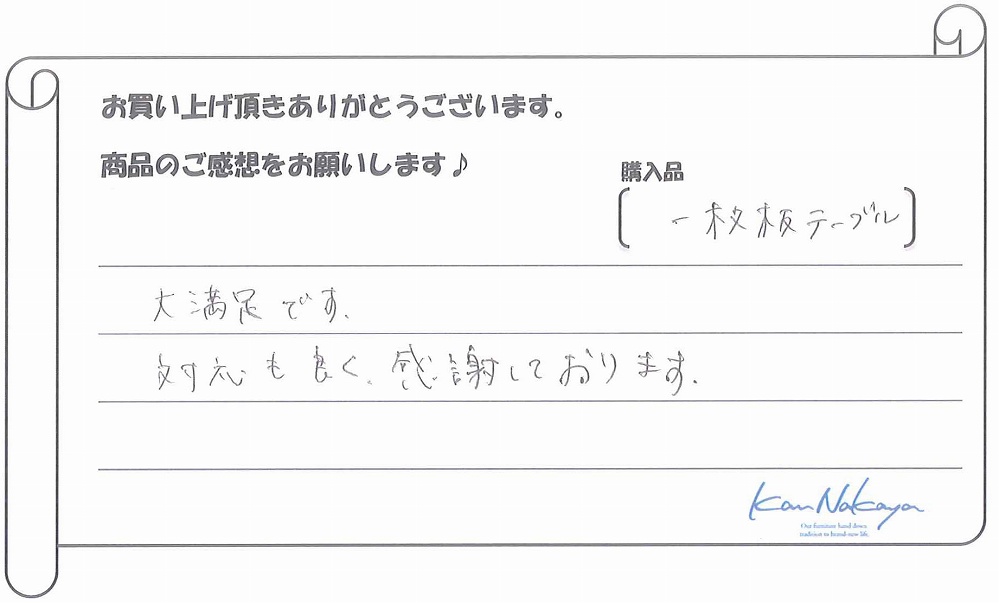 お買い上げ頂きありがとうございます。
商品のご感想をお願いします♪
購入品
一枚板テーブル
大満足です.
対応も良く、感謝しております.
Kan Nakaya
Our furniture hand down
tradition to brand-new life.